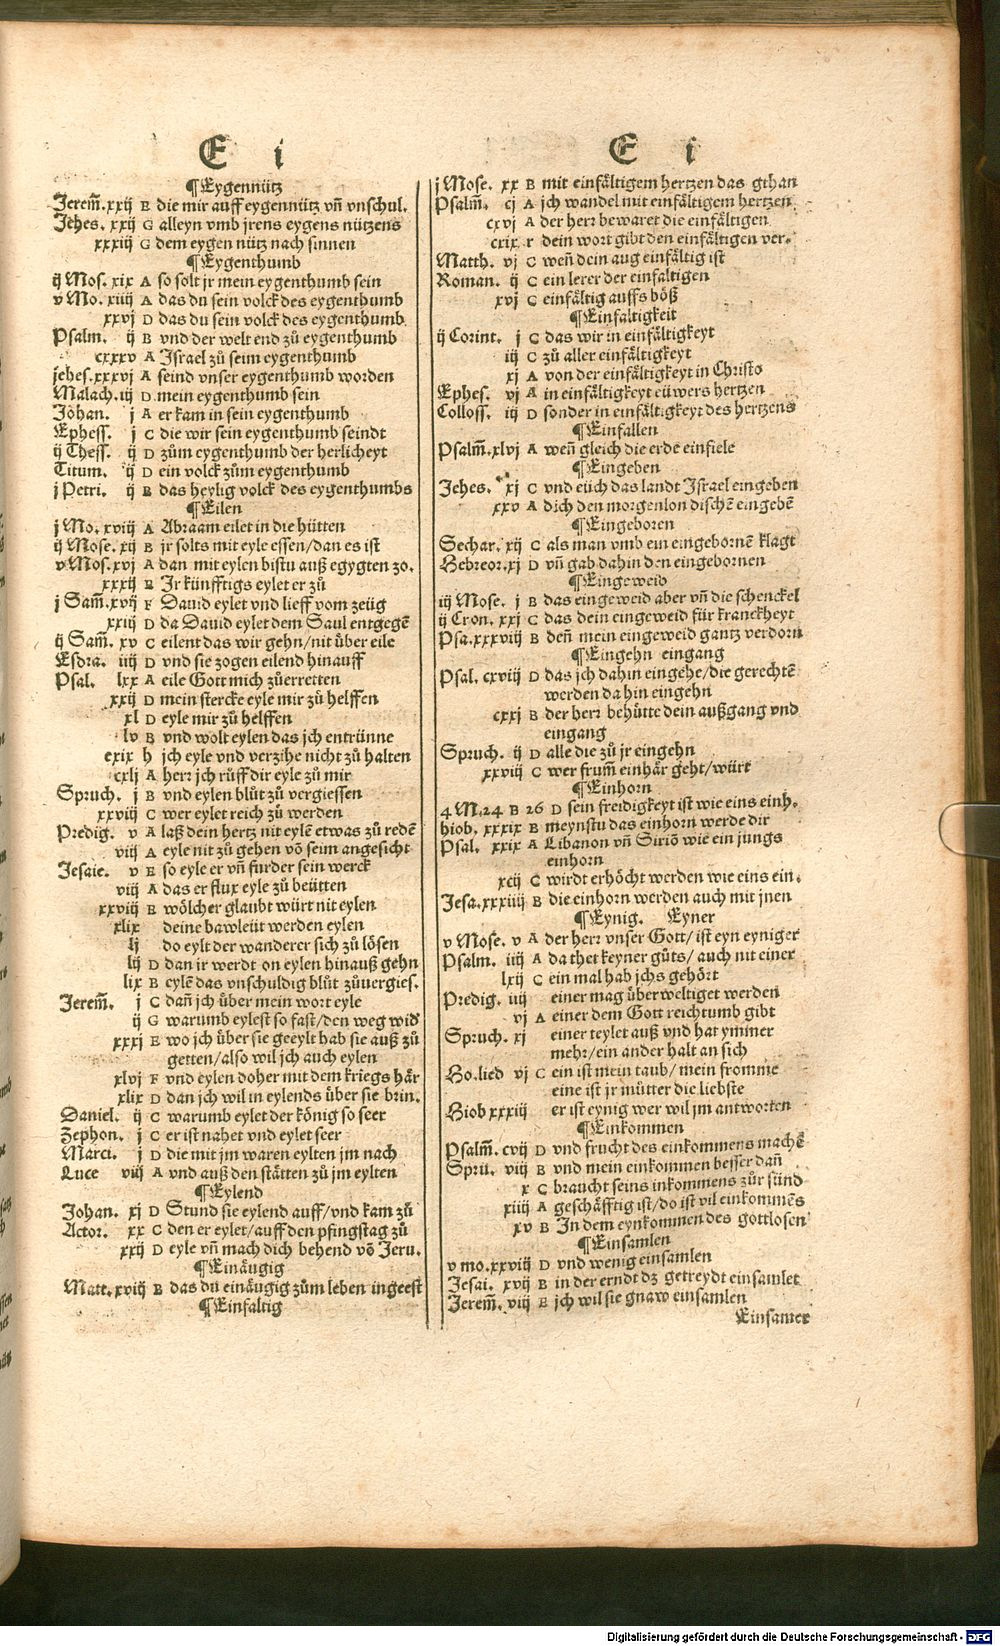 E i
¶Eygennütz
Jerem̃.xxij E die mir auff eygennütz vñ vnschul.
Jehes. xxij G alleyn vmb jrens eygens nützens
xxxiij G dem eygen nütz nach sinnen
¶Eygenthumb
ij Mos. xix A so solt jr mein eygenthumb sein
v Mo. xiiij A das du sein volck des eygenthumb
xxvj D das du sein volck des eygenthumb
Psalm. ij B vnd der welt end zů eygenthumb
cxxxv A Israel zů seim eygenthumb
jehes.xxxvj A seind vnser eygenthumb worden
Malach.iij D mein eygenthumb sein
Johan. j A er kam in sein eygenthumb
Ephess. j C die wir sein eygenthumb seindt
ij Thess. ij D zům eygenthumb der herlicheyt
Titum. ij D ein volck zům eygenthumb
j Petri. ij B das heylig volck des eygenthumbs
¶Eilen
j Mo. xviij A Abraam eilet in die hütten
ij Mose. xij B jr solts mit eyle essen/dan es ist
v Mos.xvj A dan mit eylen bistu auß egygten zo.
xxxij E Ir künfftigs eylet er zů
j Sam̃.xvij F Dauid eylet vnd lieff vom zeüg
xxiij D da Dauid eylet dem Saul entgegē
ij Sam̃. xv C eilent das wir gehn/nit über eile
Esdra. iiij D vnd sie zogen eilend hinauff
Psal. lxx A eile Gott mich zůerretten
xxij D mein stercke eyle mir zů helffen
xl D eyle mir zů helffen
lv B vnd wolt eylen das jch entrünne
cxix h jch eyle vnd verzihe nicht zů halten
cxlj A herr jch rüff dir eyle zů mir
Spruch. j B vnd eylen blůt zů vergiessen
xxviij C wer eylet reich zů werden
Predig. v A laß dein hertz nit eylē etwas zů redē
viij A eyle nit zů gehen võ seim angesicht
Jesaie. v E so eyle er vñ furder sein werck
viij A das er flux eyle zů beütten
xxviij E wölcher glaubt würt nit eylen
xlix deine bawleüt werden eylen
lj do eylt der wanderer sich zů lösen
lij D dan jr werdt on eylen hinauß gehn
lix B eylē das vnschuldig blůt zůuergies.
Jerem̃. j C dañ jch über mein wort eyle
ij G warumb eylest so fast/den weg wid
xxxj E wo jch über sie geeylt hab sie auß zů
getten/also wil jch auch eylen
xlvj F vnd eylen doher mit dem kriegs här
xlix D dan jch wil in eylends über sie brin.
Daniel. ij C warumb eylet der könig so seer
Zephon. j C er ist nahet vnd eylet seer
Marci. j D die mit jm waren eylten jm nach
Luce viij A vnd auß den stätten zů jm eylten
¶Eylend
Johan. xj D Stund sie eylend auff/vnd kam zů
Actor. xx C den er eylet/auff den pfingstag zů
xxij D eyle vñ mach dich behend võ Jeru.
¶Einäugig
Matt.xviij B das du einäugig zům leben ingeest
¶Einfaltig
E i
j Mose. xx B mit einfältigem hertzen das gthan
Psalm̃. cj A jch wandel mit einfältigem hertzen
cxvj A der herr bewaret die einfältigen
cxix r dein wort gibt den einfältigen ver.
Matth. vj C weñ dein aug einfältig ist
Roman. ij C ein lerer der einfaltigen
xvj C einfältig auffs böß
¶Einfaltigkeit
ij Corint. j C das wir in einfältigkeyt
iij C zů aller einfältigkeyt
xj A von der einfältigkeyt in Christo
Ephes. vj A in einfältigkeyt eüwers hertzen
Colloss. iij D sonder in einfältigkeyt des hertzens
¶Einfallen
Psalm̃.xlvj A weñ gleich die erde einfiele
¶Eingeben
Jehes. xj C vnd eüch das landt Israel eingeben
xxv A dich den morgenlon dischē eingebē
¶Eingeboren
Sechar. xij C als man vmb ein eingebornē klagt
Hebreor.xj D vñ gab dahin den eingebornen
¶Eingeweid
iij Mose. j B das eingeweid aber vñ die schenckel
ij Cron. xxj C das dein eingeweid für kranckheyt
Psa.xxxviij B deñ mein eingeweid gantz verdorn
¶Eingehn eingang
Psal. cxviij D das jch dahin eingehe/die gerechtē
werden dahin eingehn
cxxj B der herr behütte dein außgang vnd
eingang
Spruch. ij D alle die zů jr eingehn
xxviij C wer frum̃ einhär geht/würt
¶Einhorn
4 M.24 B 26 D sein freidigkeyt ist wie eins einh.
hiob. xxxix B meynstu das einhorn werde dir
Psal. xxix A Libanon vñ Siriõ wie ein jungs
einhorn
xcij C wirdt erhöcht werden wie eins ein.
Jesa.xxxiiij B die einhorn werden auch mit jnen
¶Eynig. Eyner
v Mose. v A der herr vnser Gott/ist eyn eyniger
Psalm. iiij A da thet keyner gůts/auch nit einer
lxij C ein mal hab jchs gehört
Predig. iiij einer mag überweltiget werden
vj A einer dem Gott reichtumb gibt
Spruch. xj einer teylet auß vnd hat ymmer
mehr/ein ander halt an sich
Ho.lied vj C ein ist mein taub/mein fromme
eine ist jr můtter die liebste
Hiob xxxiij er ist eynig wer wil jm antworten
¶Einkommen
Psalm̃. cvij D vnd frucht des einkommens machē
Sprü. viij B vnd mein einkommen besser dañ
x C braucht seins inkommens zůr sünd
xiiij A geschäfftig ist/do ist vil einkommēs
xv B In dem eynkommen des gottlosen
¶Einsamlen
v mo.xxviij D vnd wenig einsamlen
Jesai. xvij B in der erndt dz getreydt einsamlet
Jerem̃. viij E jch wil sie gnaw einsamlen
Einsamer
Digitalisierung gefördert durch die Deutsche Forschungsgemeinschaft - DFG